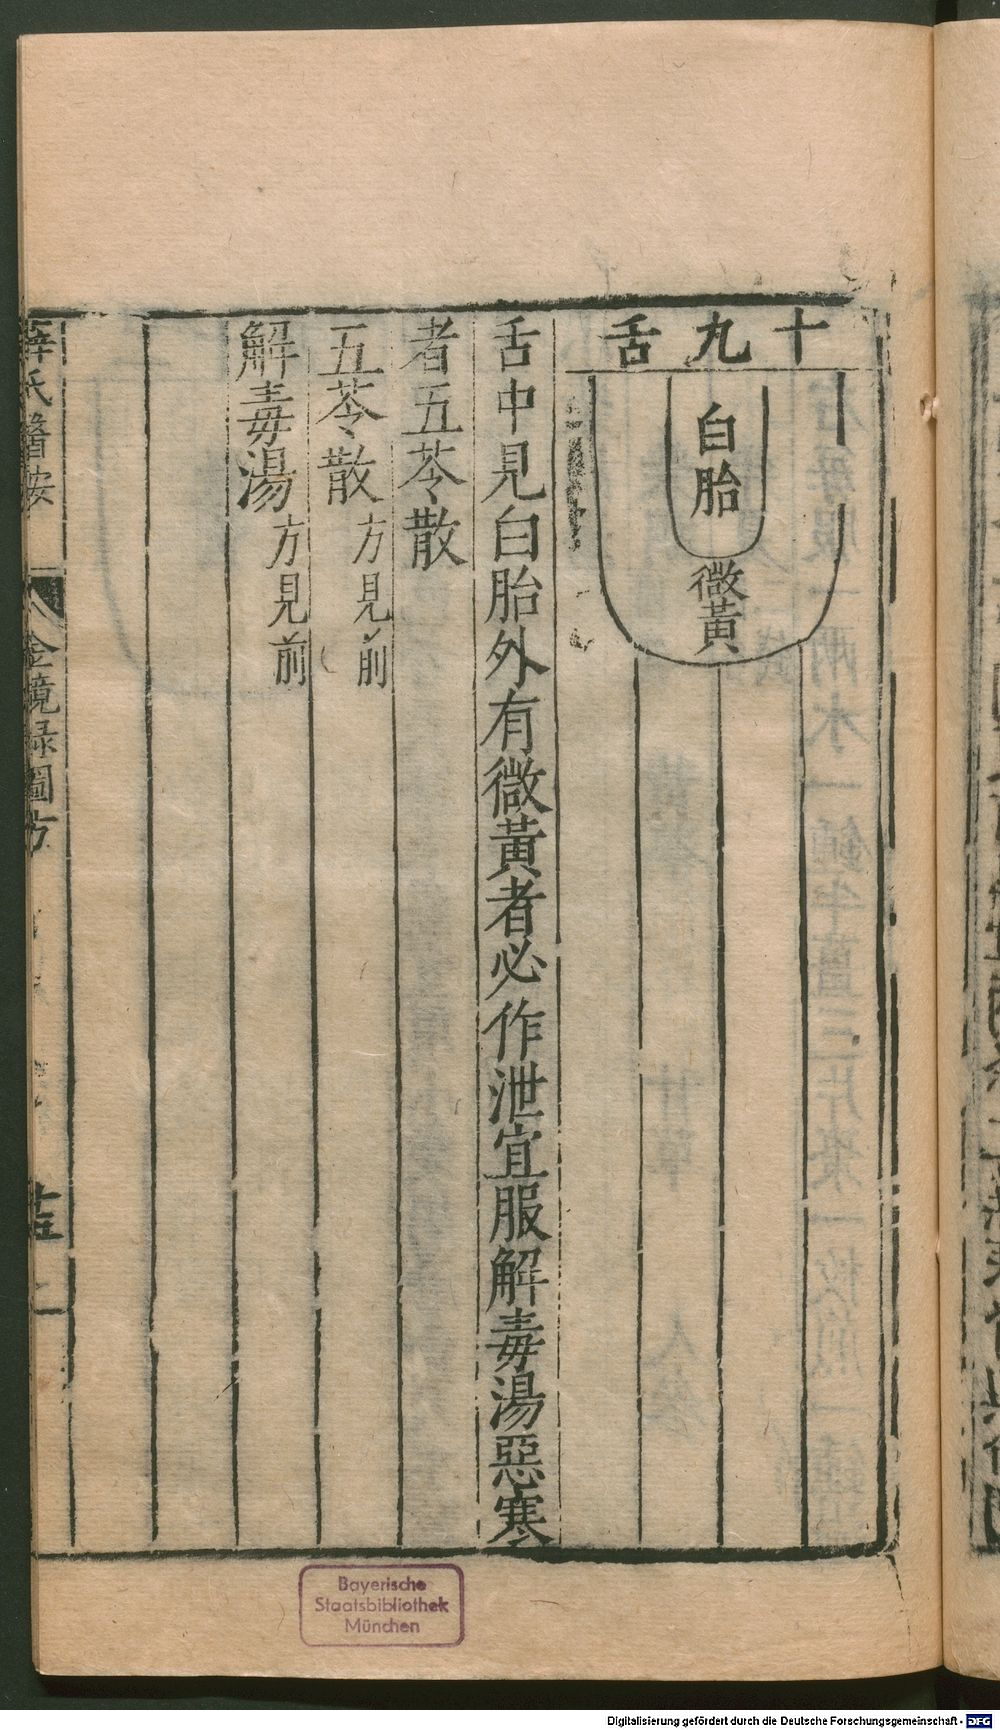 十九舌
白胎
微黃
舌中見白胎外有微黃者必作泄宜服解毒湯惡寒
者五苓散
五苓散 方見前
解毒湯 方見前
薛氏醫按 金鏡錄圖方
Bayerische
Staatsbibliothek
München
Digitalisierung gefördert durch die Deutsche Forschungsgemeinschaft - DFG